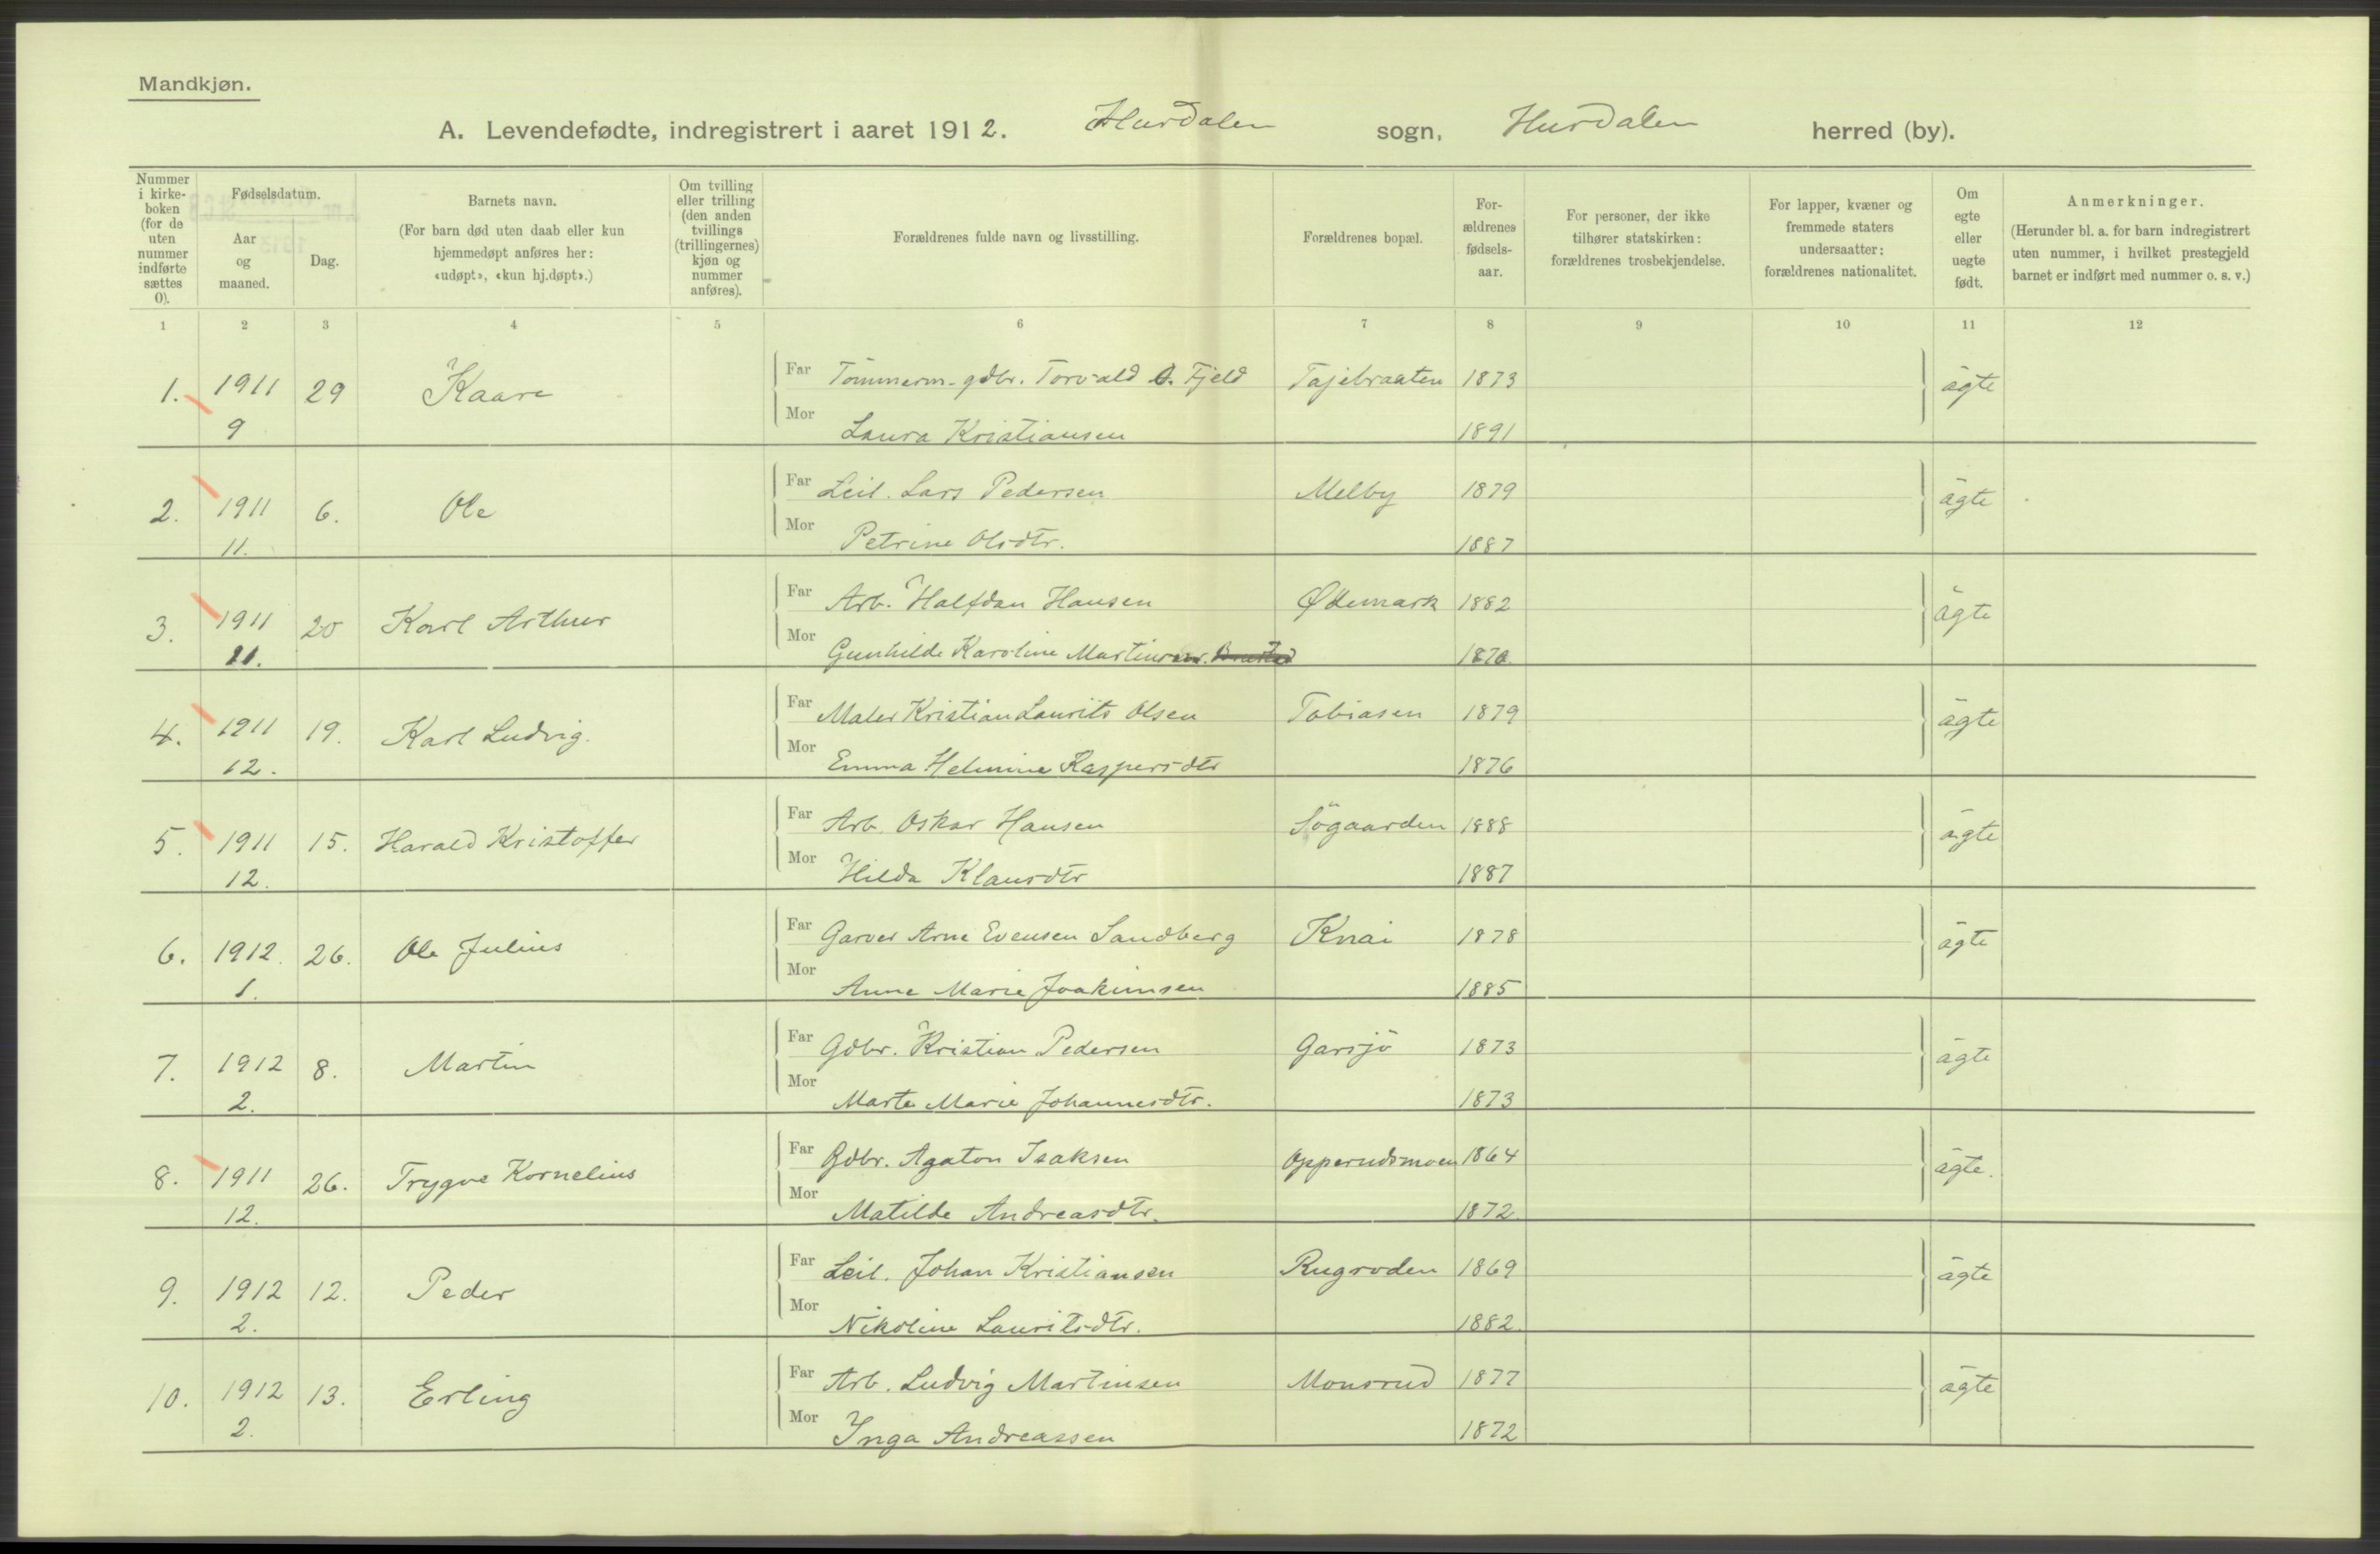 Mandkjøn.
A. Levendefødte, indregistrert i aaret 1912. Hurdalen sogn, Hurdalen herred (by).
Nummer i kirke-boken (for de uten nummer indførte sættes 0).
Fødselsdatum.
Aar og maaned.
Dag.
Barnets navn.
(For barn død uten daab eller kun hjemmedøpt anføres her: «udøpt», «kun hj.døpt».)
Om tvilling eller trilling (den anden tvillings (trillingernes) kjøn og nummer anføres).
Forældrenes fulde navn og livsstilling.
Forældrenes bopæl.
For-ældrenes fødsels-aar.
For personer, der ikke tilhører statskirken: forældrenes trosbekjendelse.
For lapper, kvæner og fremmede staters undersaatter: forældrenes nationalitet.
Om egte eller uegte født.
Anmerkninger.
(Herunder bl. a. for barn indregistrert uten nummer, i hvilket prestegjeld barnet er indført med nummer o. s. v.)
1 2 3 4 5 6 7 8 9 10 11 12
1. 1911 29 Kaare Far Tömmerm. gdbr. Torvald O. Fjeld Tajebraaten 1873 ägte
9 Mor Laura Kristiansen 1891
2. 1911 6. Ole Far Leil. Lars Pedersen Melby 1879 ägte
11. Mor Petrine Olsdtr. 1887
3. 1911 20 Karl Arthur Far Arb. Halfdan Hansen Ødemark 1882 ägte
11. Mor Gunhilde Karoline Martinsen. 1870.
4. 1911 19. Karl Ludvig. Far Maler Kristian Laurits Olsen Tobiasen 1879 ägte
12. Mor Emma Helmine Kaspersdtr 1876
5. 1911 15. Harald Kristoffer Far Arb. Oskar Hansen Sögaarden 1888 ägte
12. Mor Hilda Klausdtr 1887
6. 1912. 26. Ole Julius Far Garver Arne Evensen Sandberg Knai 1878 ägte
1. Mor Anne Marie Joakimsen 1885
7. 1912 8. Martin Far Gdbr. Kristian Pedersen Garsjö 1873 ägte
2. Mor Marte Marie Johannesdtr. 1873
8. 1911 26. Trygve Kornelius Far Gdbr. Agaton Isaksen Opperudsmoen 1864 ägte.
12. Mor Matilde Andreasdtr. 1872.
9. 1912 12. Peder Far Leil. Johan Kristiansen Rugroden 1869 ägte
2. Mor Nikoline Lauritsdtr. 1882.
10. 1912 13. Erling Far Arb. Ludvig Martinsen Monsrud 1877 ägte
2. Mor Inga Andreassen 1872